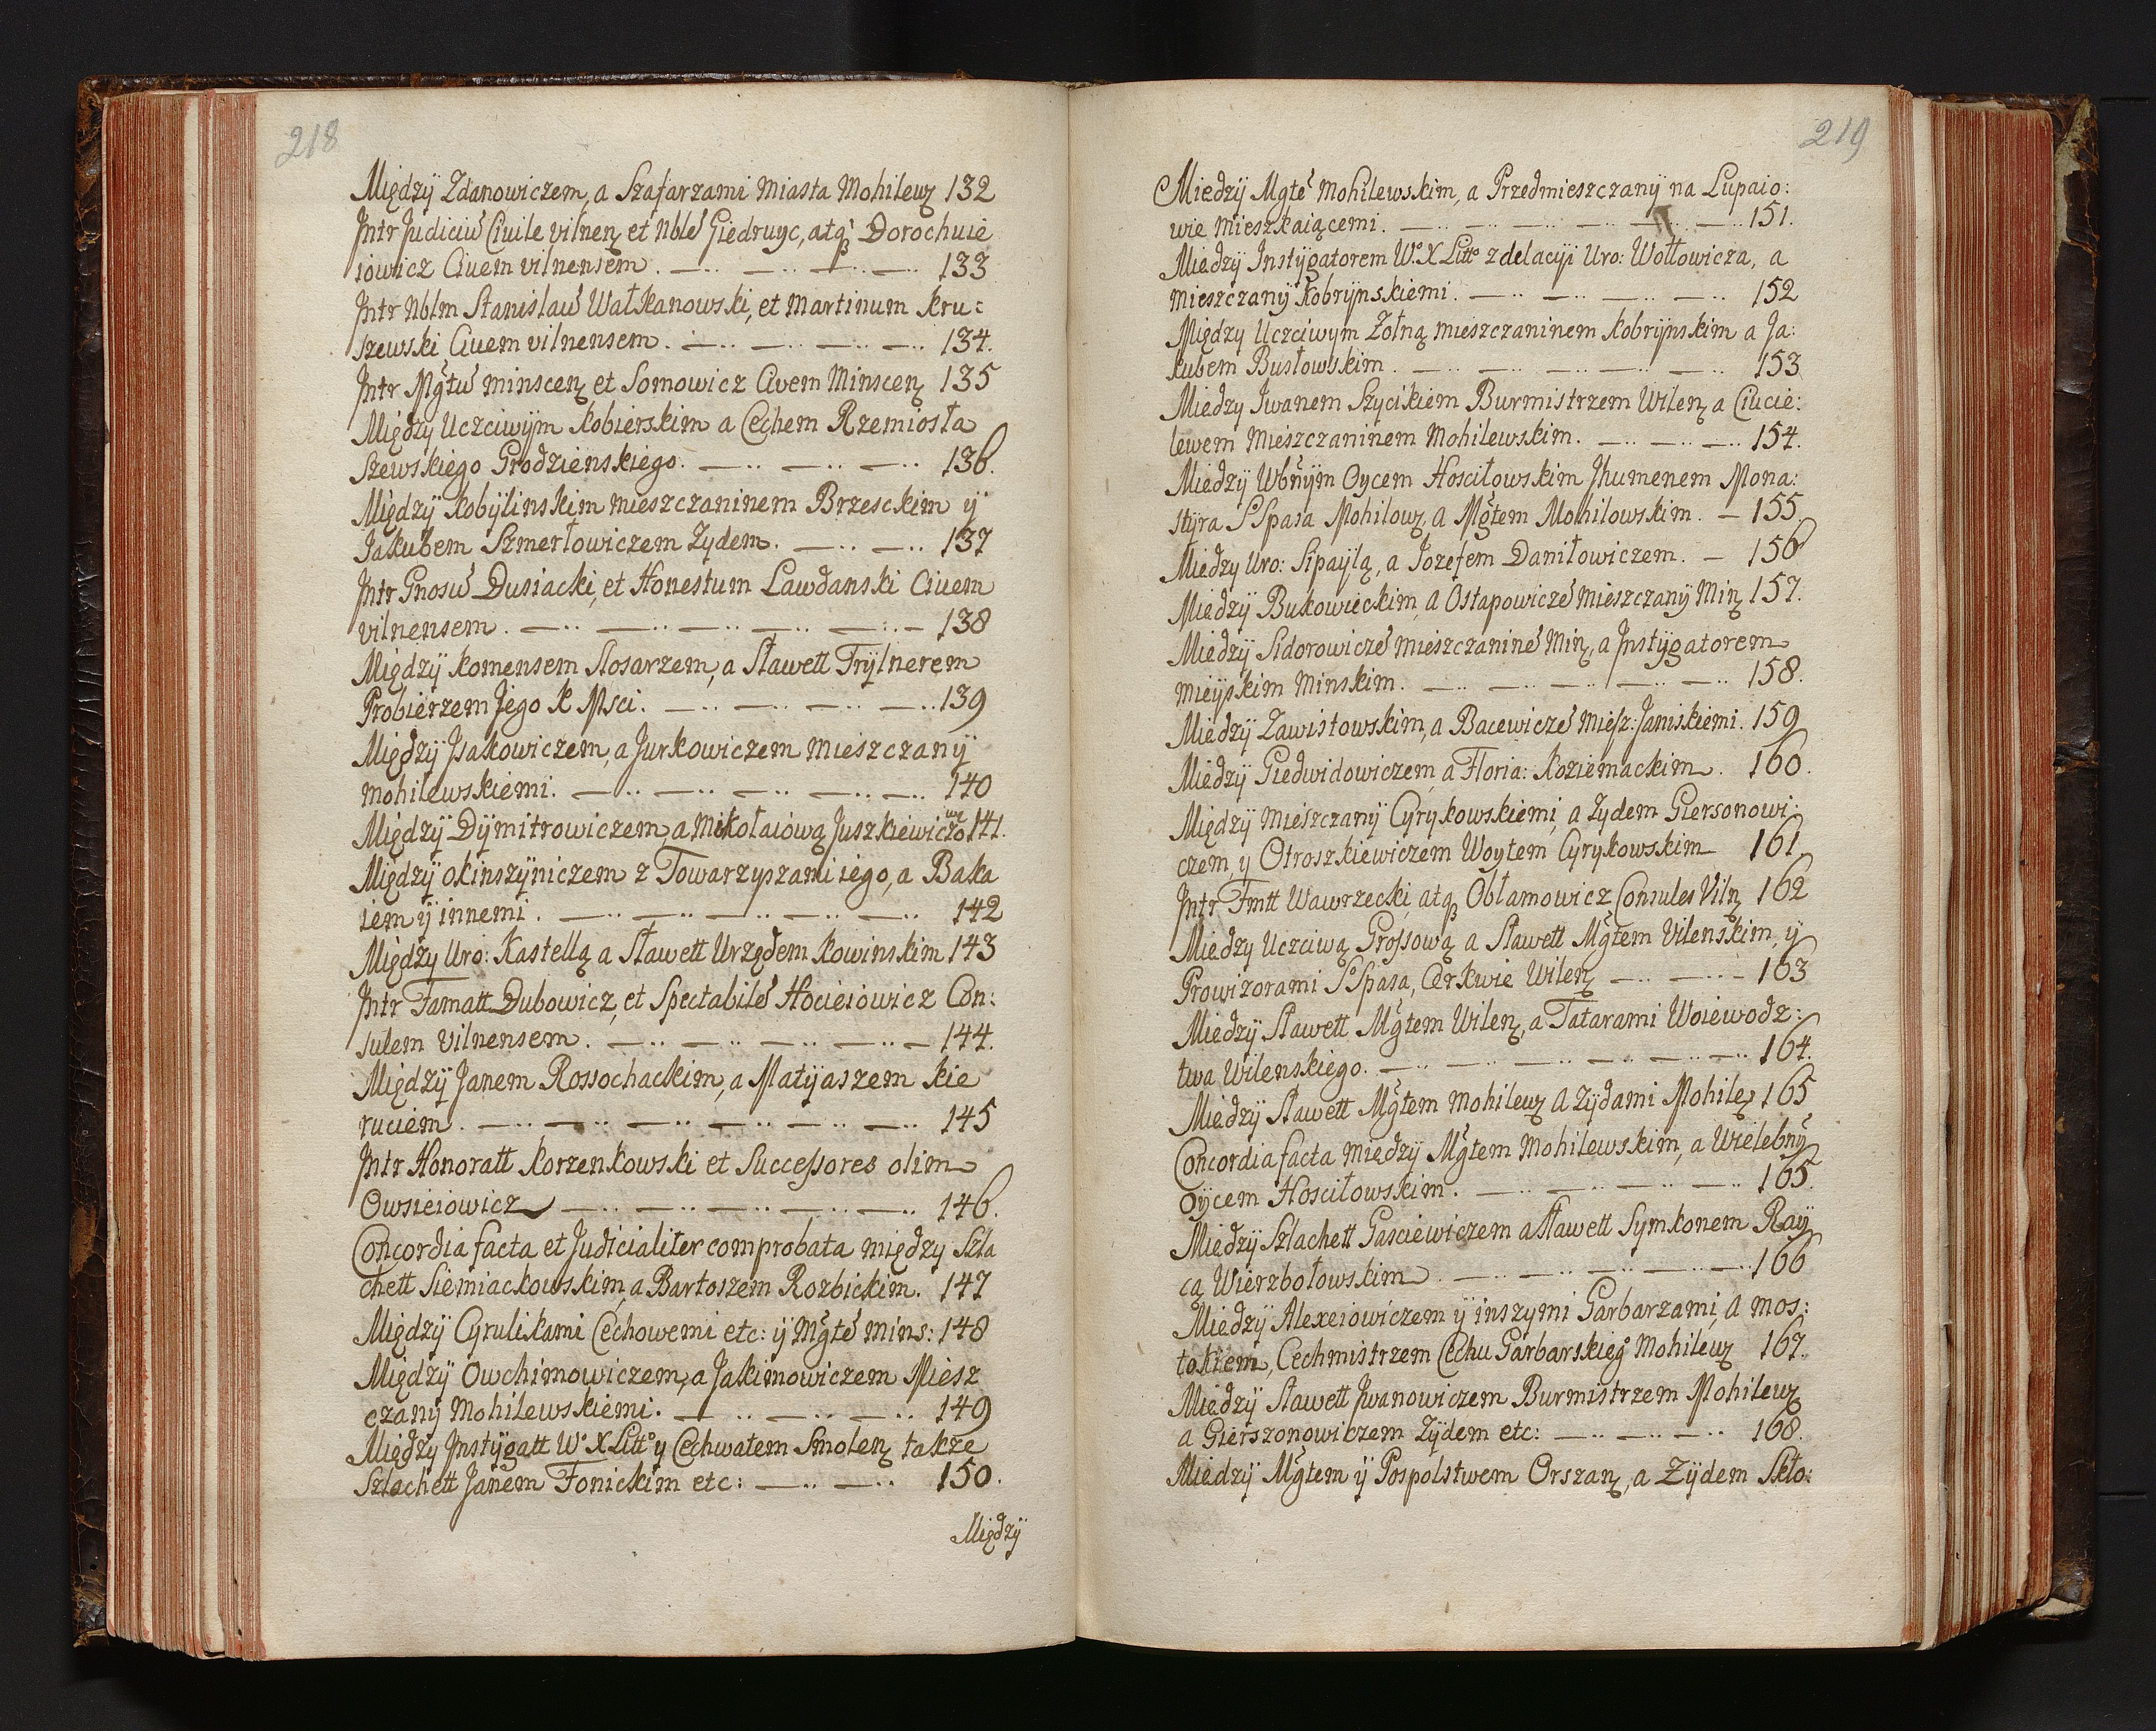 218
Między Zdanowiczem, a Szafarzami Miasta Mohilewz 132
Intr Judiciu Civile vilnenz et Nble Giedruyc, atq Dorochuie
iowicz Civem vilnensem. 133
Intr Nblm Stanislau Wałkanowski, et Martinum Kru:
szewski Civem vilnensem. 134.
Intr Mgtu minscenz et Somowicz Civem Minscenz 135
Między Uczciwym Kobierskim a Cechem Rzemiosła
Szewskiego Grodzienskiego. 136.
Między Kobylinskim mieszczaninem Brzesckim ÿ
Jakubem Szmerłowiczem Zydem. 137
Intr Gnosu Dusiacki, et Honestum Lawdanski Civem
vilnensem. 138
Między Komensem Slosarzem, a Sławett Tryłnerem
Probierzem Jego K Msci. 139
Między Isakowiczem, a Jurkowiczem mieszczanÿ
mohilewskiemi. 140
Między Dÿmitrowiczem, a Mikołaiową Juszkiewiczowe 141.
Między okinszyniczem z Towarzyszami iego, a Baka
iem ÿ innemi. 142
Między Uro: Kastellą a Sławett Urzędem Kowinskim 143
Intr Famatt Dubowicz, et Spectabile Hocieiowicz Con:
sulem Vilnensem. 144.
Między Janem Rossochackim, a Matÿaszem Kie
ruciem. 145
Intr Honoratt Korzenkowski et Successores olim
Owsieiowicz 146.
Concordia facta et Judicialiter comprobata między Szla
chett Siemiackowskim, a Bartoszem Rozbickim. 147
Między Cyrulikami Cechowemi etc: ÿ Mgte Mins: 148
Między Owchimowiczem, a Jakimowiczem Miesz
czany Mohilewskiemi. 149
Między Instÿgatt W° X Litt° y Cechwatem Smolenz także
Szlachett Janem Fonickim etc: 150.
Międzÿ
219
Miedzÿ Mgte Mohilewskim, a Przedmieszczanÿ na Łupaio:
wie mieszkaiącemi. 151.
Miedzÿ Instÿgatorem W° X Litt° z delacyi Uro: Wołłowicza, a
mieszczanÿ Kobrÿnskiemi. 152
Między Uczciwym Zołną mieszczaninem Kobrÿnskim a Ja:
kubem Busłowskim. 153
Miedzy Iwanem Szycikiem Burmistrzem Wilenz a Ciucie:
lewem Mieszczaninem Mohilewskim. 154.
Miedzÿ Wbnÿm Oycem Hosciłowskim Jhumenem Mona:
stÿra S Spasa Mohilowz, a Mgtem Mohilowskim. 155
Miedzy Uro: Sipayłą, a Jozefem Daniłowiczem. 156
Miedzÿ Bukowieckim, a Ostapowicze mieszczanÿ Minz 157.
Miedzÿ Sidorowicze mieszczanine Minz, a Instÿgatorem
mieÿskim Minskim. 158.
Miedzÿ Zawistowskim, a Bacewicze miesz: Janiskiemi. 159
Miedzÿ Giedwidowiczem, a Floria: Koziemackim. 160.
Między mieszczanÿ Cyrykowskiemi, a Zydem Giersonowi:
czem, y Otroszkiewiczem Woytem Cyrykowskim 161
Intr Fmtt Wawrzecki, atq Obłamowicz Consules Vilnz 162
Miedzy Uczciwą Grossową a Sławett Mgtem Vilenskim, ÿ
Prowizorami S Spasa, Cerkwie Wilenz 163
Miedzÿ Sławett Mgtem Wilenz, a Tatarami Woiewodz:
twa Wilenskiego. 164.
Miedzÿ Sławett Mgtem Mohilewz a Zÿdami Mohilez 165
Concordia facta Między Mgtem Mohilewskim, a Wielebnÿ
oÿcem Hosciłowskim. 165.
Miedzÿ Szlachett Gasciewiczem a Sławett Symkonem Raÿ
cą Wierzbołowskim. 166
Miedzÿ Alexeiowiczem ÿ inszymi Garbarzami, a Mos:
tokiem, Cechmistrzem Cechu Garbarskieg° Mohilewz 167.
Miedzÿ Sławett Iwanowiczem Burmistrzem Mohilewz
a Gierszonowiczem Zÿdem etc: 168.
Miedzÿ Mgtem ÿ Pospolstwem Orszanz, a Zÿdem Skło: